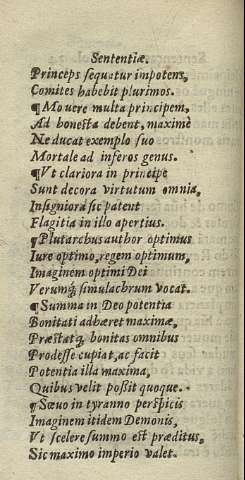 Sententiæ.
Princeps sequatur impotens,
Comites habebit plurimos.
¶Mouere multa principem,
Ad honesta debent, maximè
Ne ducat exemplo suo
Mortale ad inferos genus.
¶Vt clariora in principe
Sunt decora virtutum omnia,
Insigniora sic patent
Flagitia in illo apertius.
¶Plutarchus author optimus
Iure optimo, regem optimum,
Imaginem optimi Dei
Verumq́; simulachrum vocat.
¶Summa in Deo potentia
Bonitati adhæret maximæ,
Præstatq́; bonitas omnibus
Prodesse cupiat, ac facit
Potentia illa maxima,
Quibus velit poßit quoque.
¶Sæuo in tyranno perspicis
Imaginem itidem Demonis,
Vt scelere summo est præditus,
Sic maximo imperio valet.